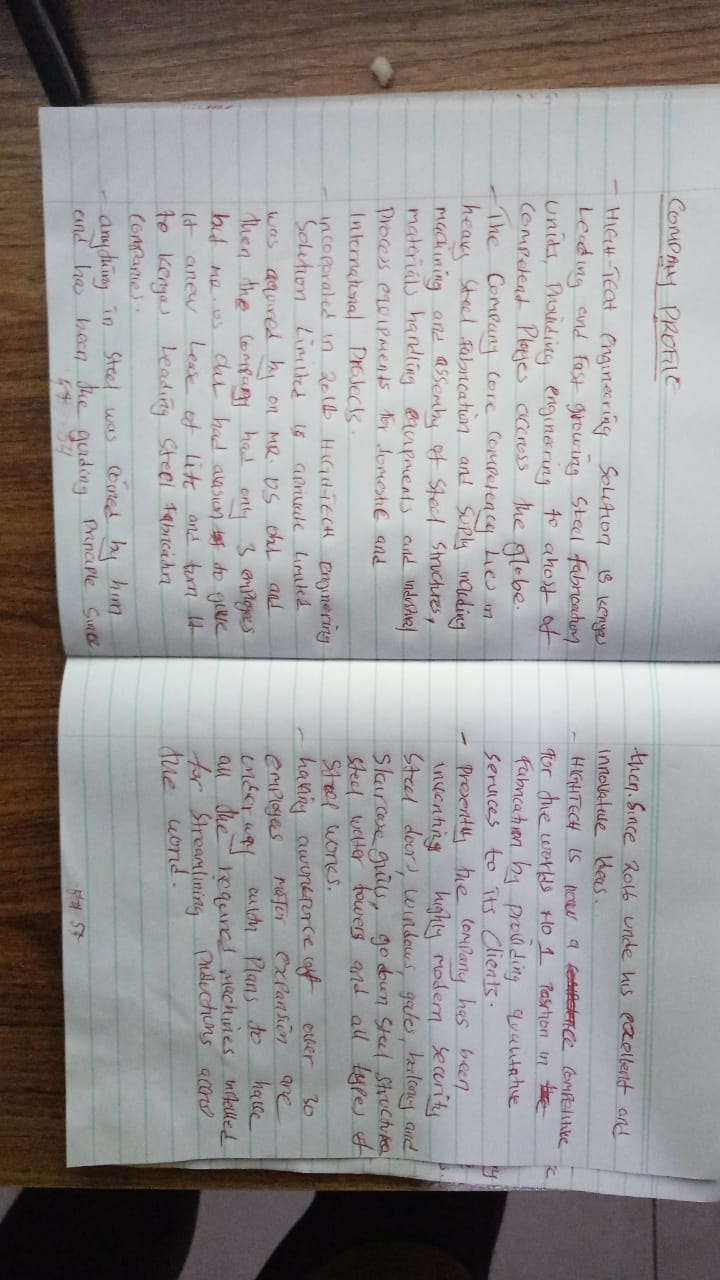 COMPANY PROFILE
- HIGH-TECH engineering Solution is Kenyas
Leading and Fast growing Steel Fabrication
units, Providing engineering to ahost of
Competent Playes accross the globe.
- The Company Core Competency Lies in
heavy Steel Fabrication and Suply including
machining and assembly of steel structures,
materials handling equipments and industrial
Process equipments for domestic and
International Projects.
- incoporated in 2016 HIGHTECH enginering
Solution Limited is aprivate limited
was aquired by on MR. OS and
Then the company had only 3 employees
but MR. OS had avision to give
it anew Lease of Life and turn it
to Kenyas Leading Steel Fabrication
Companies.
- anything in Steel was coined by him
and has been the guiding Principle Since
then. Since 2016 unde his excellent and
innovative Ideas.
- HIGHTECH is now a Competitive
For the worlds No 1 Position in
Fabrication by providing qualitative
services to its Clients.
- Presently the company has been
inventing highly modern security
Steel doors, windows, gates, balcony and
Staircase grills, go down Steel Structures
steel water towers and all types of
Steel works.
- having aworkforce of over 30
employes major expansion are
underway with Plans to have
all the required machines installed
for Streamlining Productions accros
the world.